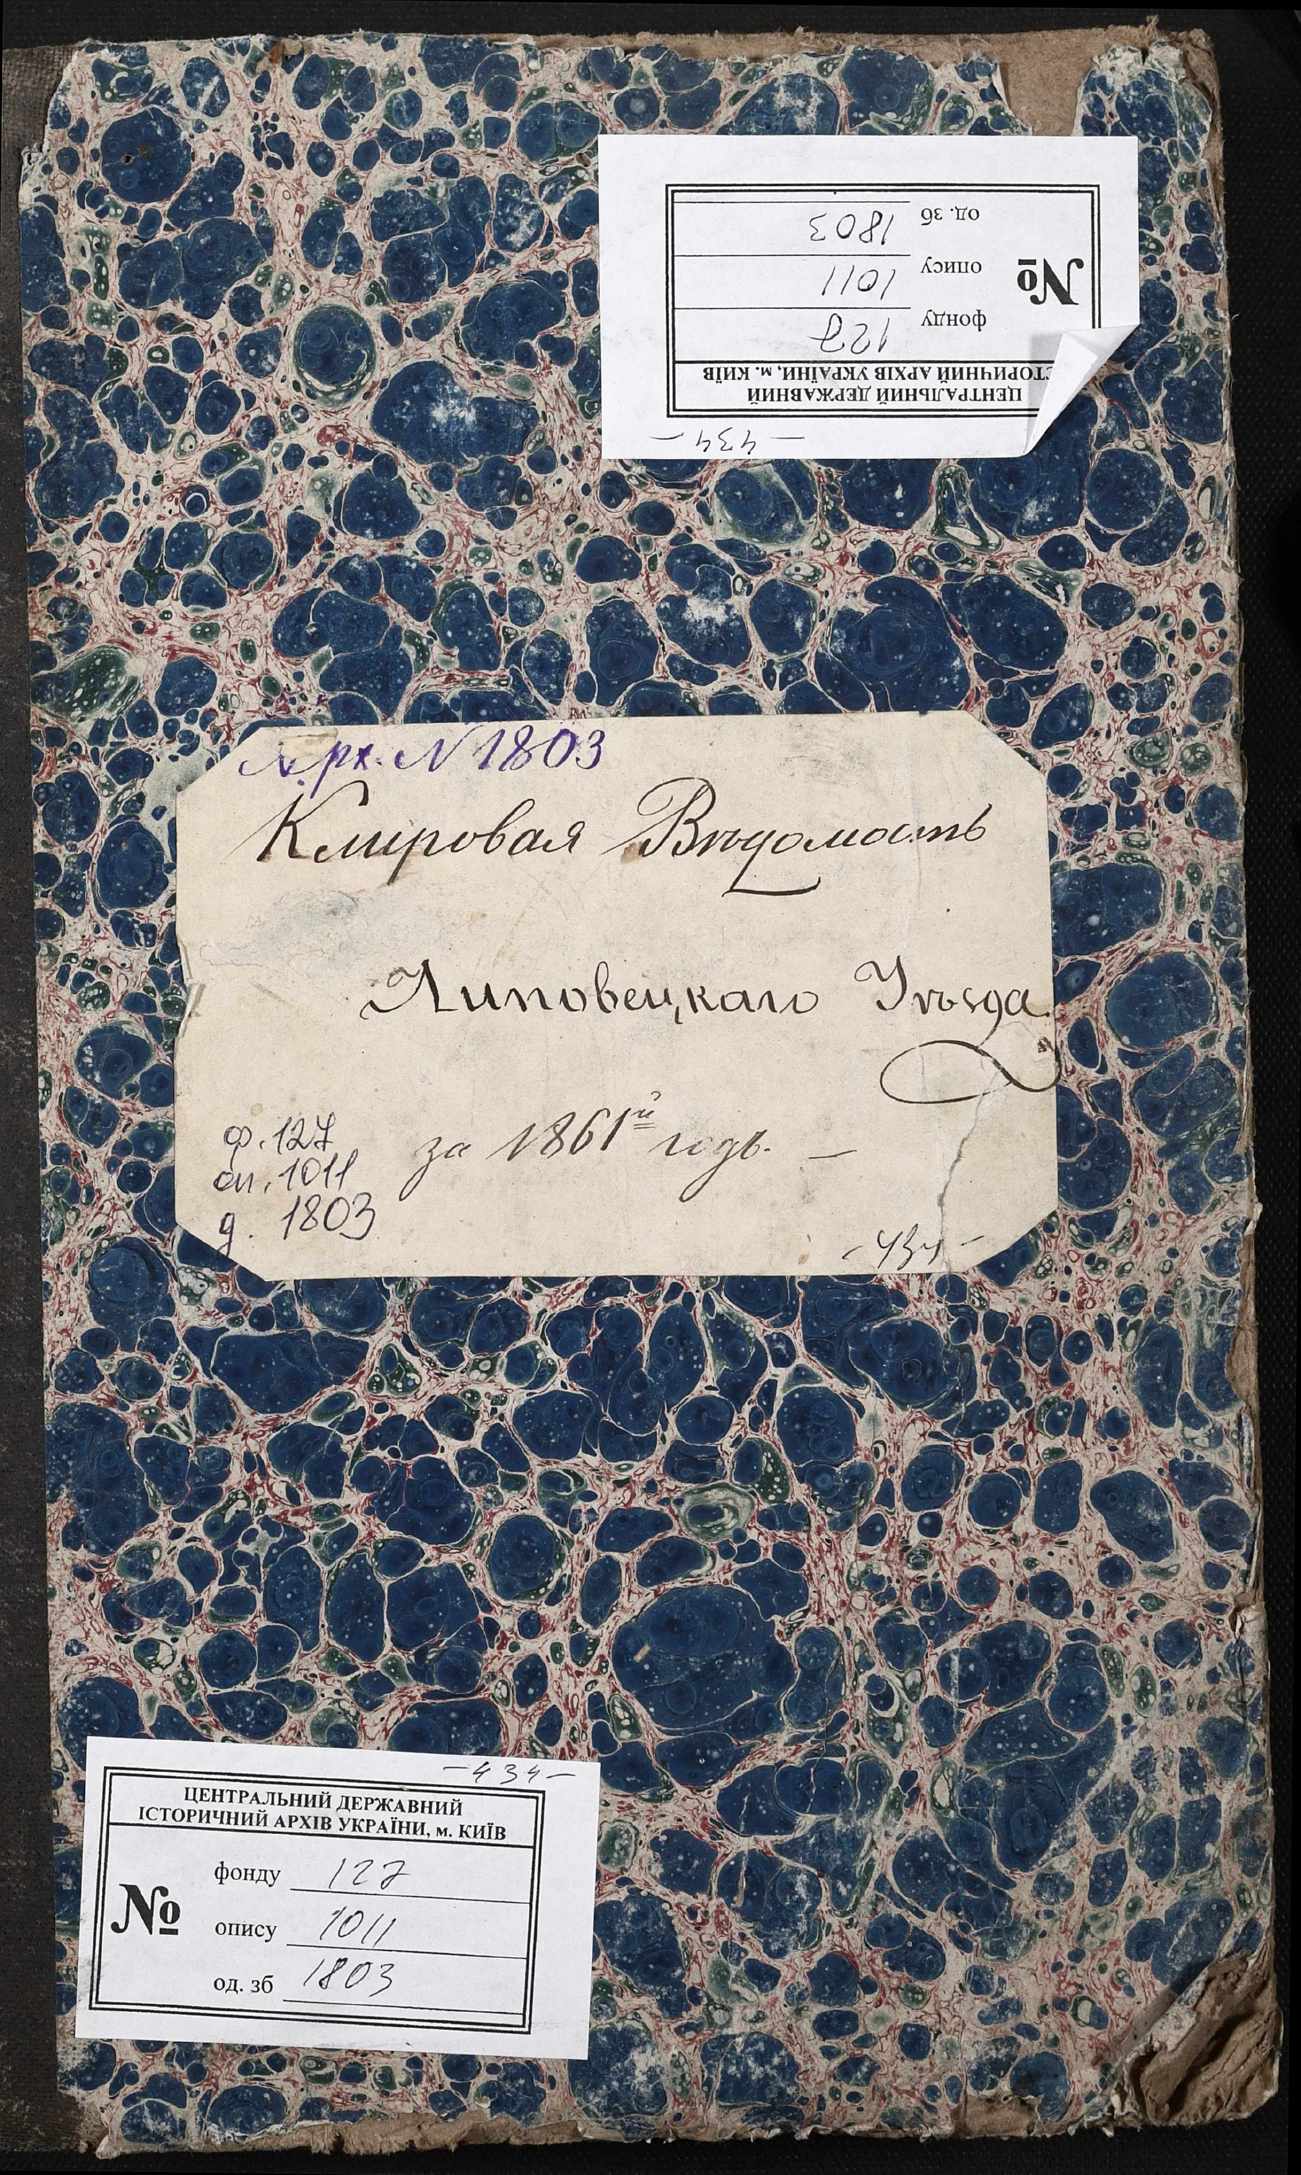 - 434 -
ЦЕНТРАЛЬНИЙ ДЕРЖАВНИЙ
ІСТОРИЧНИЙ АРХІВ УКРАЇНИ, м. КИЇВ
№
фонду 127
опису 1011
од. зб 1803
Арх. N 1803
Клировая Вѣдомость
Липовецкаго Уѣзда
за 1861й годъ. —
ф. 127
оп. 1011
д. 1803
- 434 -
- 434 -
ЦЕНТРАЛЬНИЙ ДЕРЖАВНИЙ
ІСТОРИЧНИЙ АРХІВ УКРАЇНИ, м. КИЇВ
№
фонду 127
опису 1011
од. зб 1803